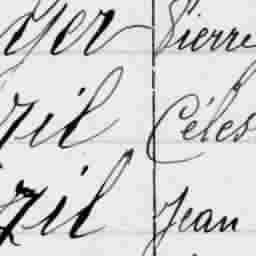 yer Pierre
ril Céles
zil Jean